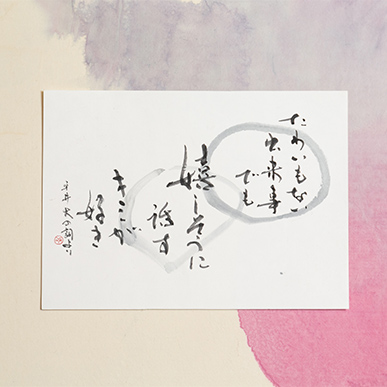 たわいもない
出来事
でも
嬉しそうに
話す
キミが
好き